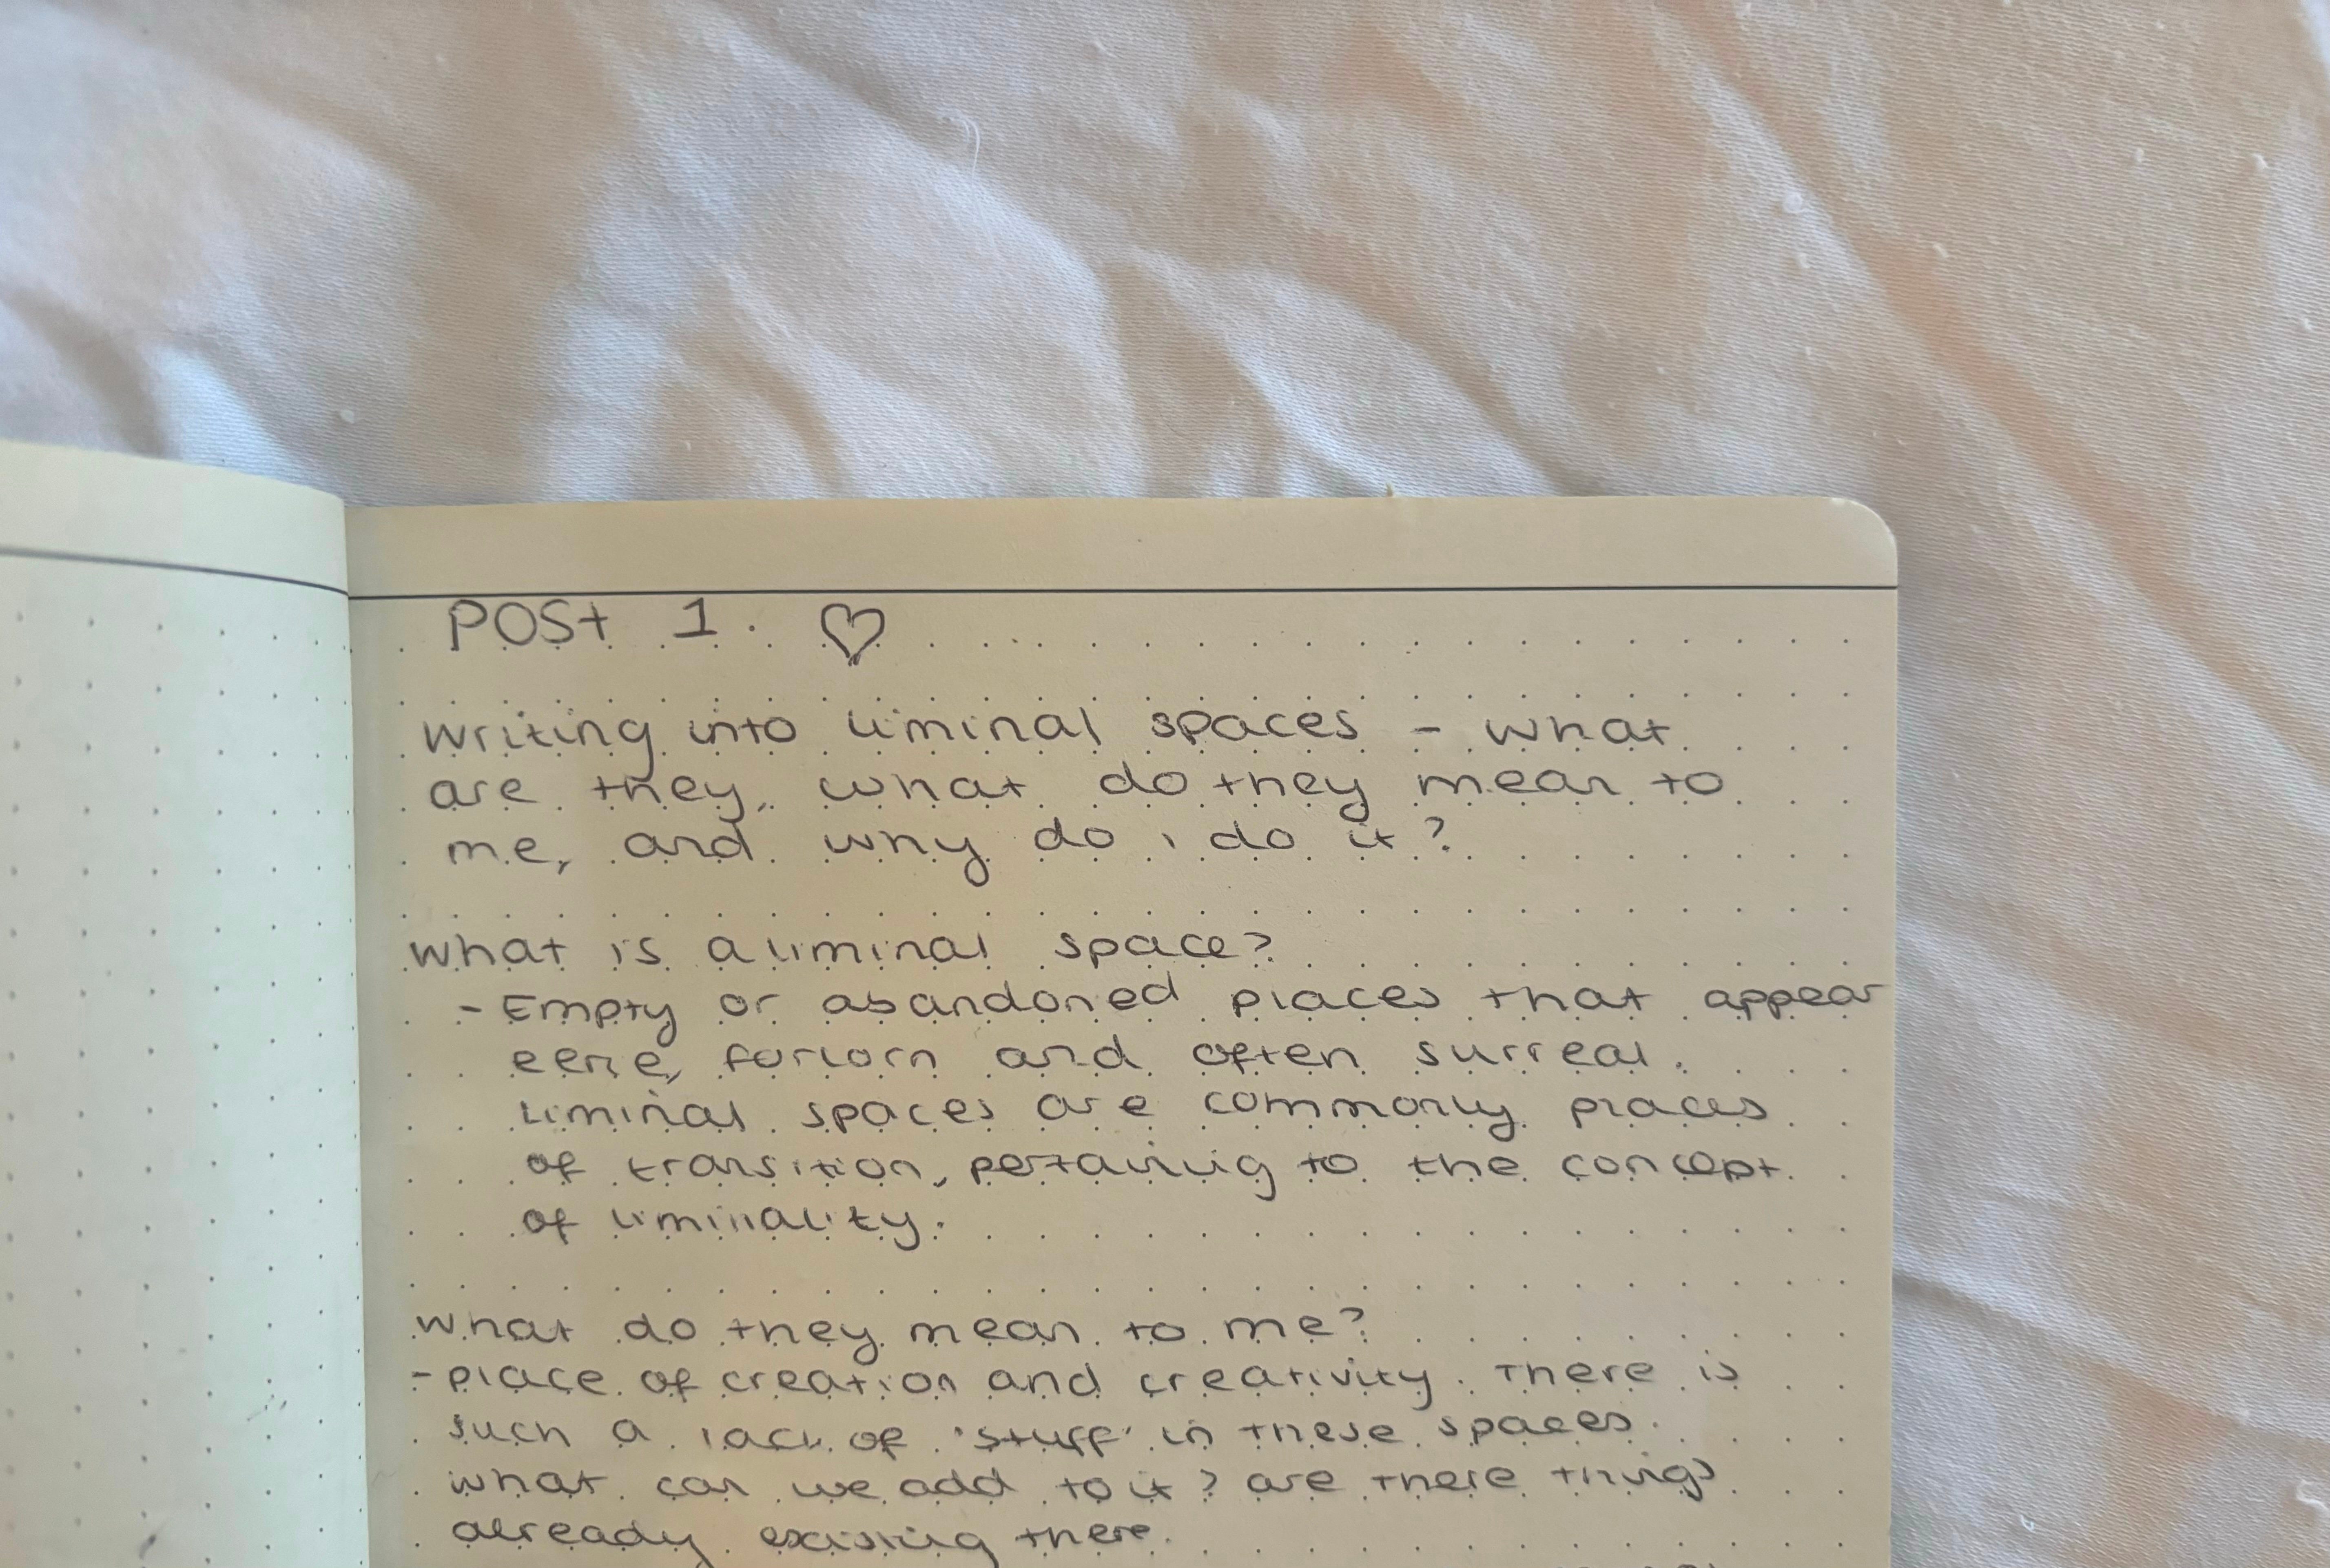 POSt 1. ♡
writing into liminal spaces - what
are they, what do they mean to
me, and why do i do it?
what is a liminal space?
- Empty or abandoned places that appear
eerie, forlorn and often surreal.
liminal spaces are commonly places
of transition, pertaining to the concept
of liminality.
what do they mean to me?
- place of creation and creativity. There is
such a lack of 'stuff' in these spaces.
what can we add to it? are there things
already existing there.